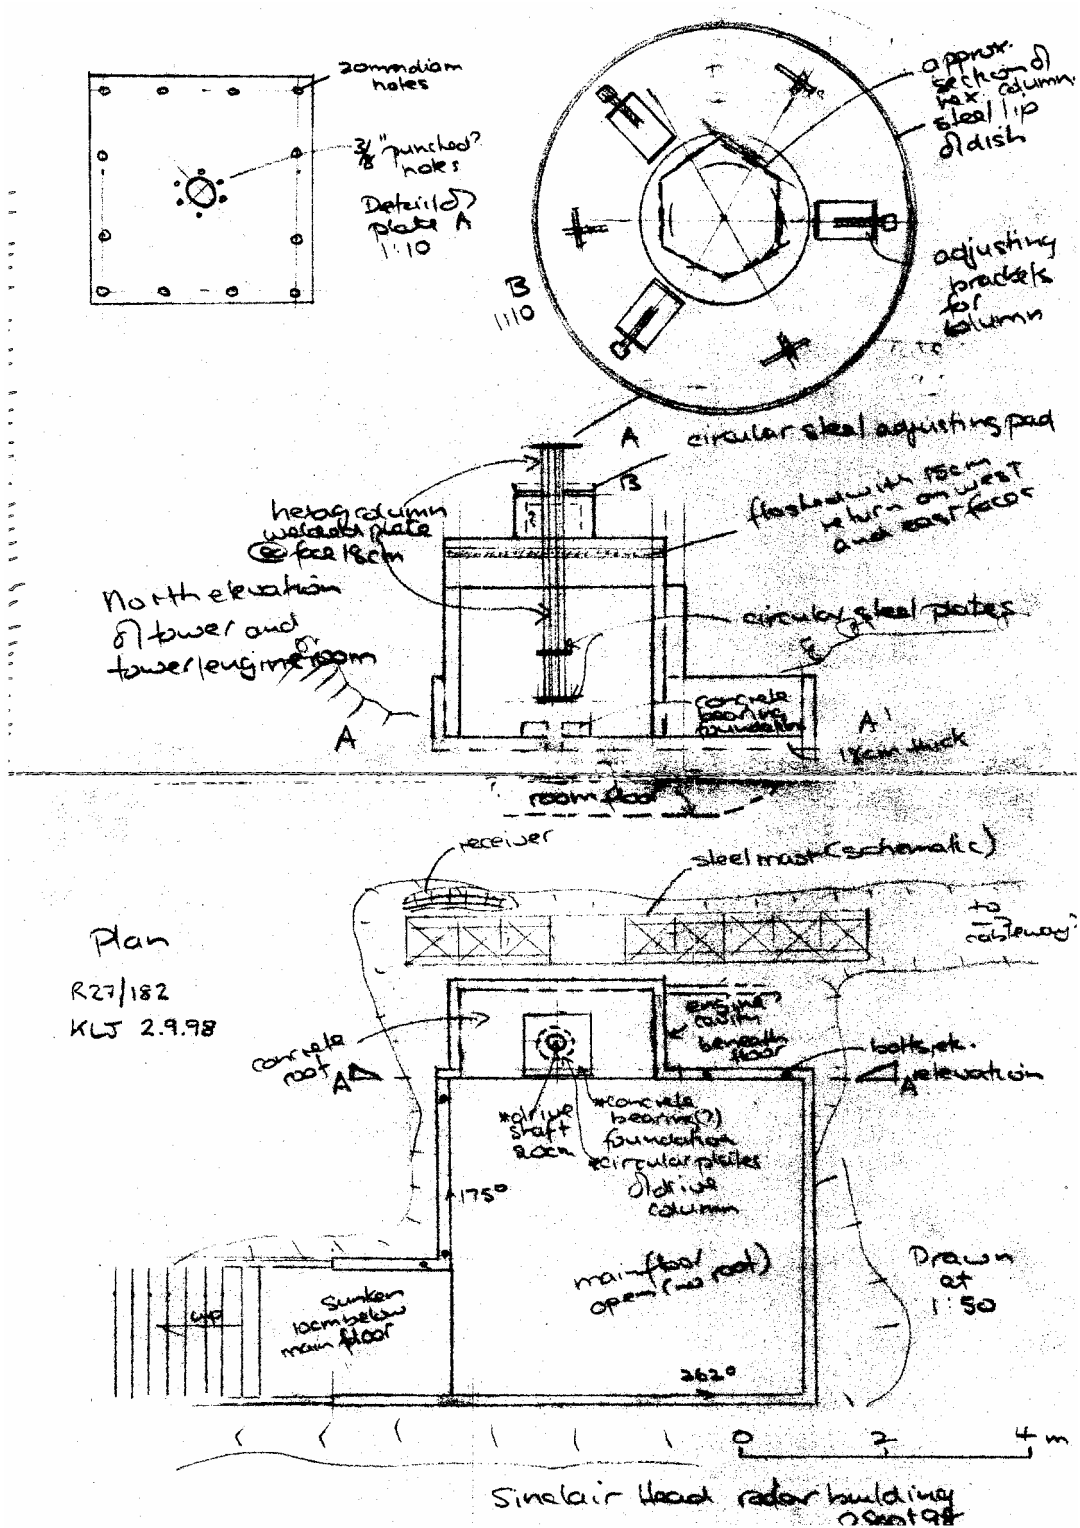 20mm diam
holes
3/8" punched?
holes
Detail of
plate A
1:10
approx.
section of
hex. column
steel lip
of dish
adjusting
brackets
for
column
B
1:10
A
circular steel adjusting pad
B
flashed with 15cm
return on west
and east faces
hexag column
welded plate
@ face 18cm
North elevation
of tower and
tower/engine room
circular steel plates
concrete
bearing
foundation
A
A'
18cm thick
room floor
receiver
steel mast (schematic)
to
cableway?
Plan
R27/182
KLJ 2.9.98
concrete
roof
engine
cavity
beneath
floor
bolts, etc.
A
A'
elevation
*drive
shaft
20cm
*concrete
bearing(?)
foundation
*circular plates
of drive
column
175°
main floor
open (no roof)
Drawn
at
1:50
up
sunken
10cm below
main floor
262°
0 2 4 m
Sinclair Head radar building
2 Sept 98